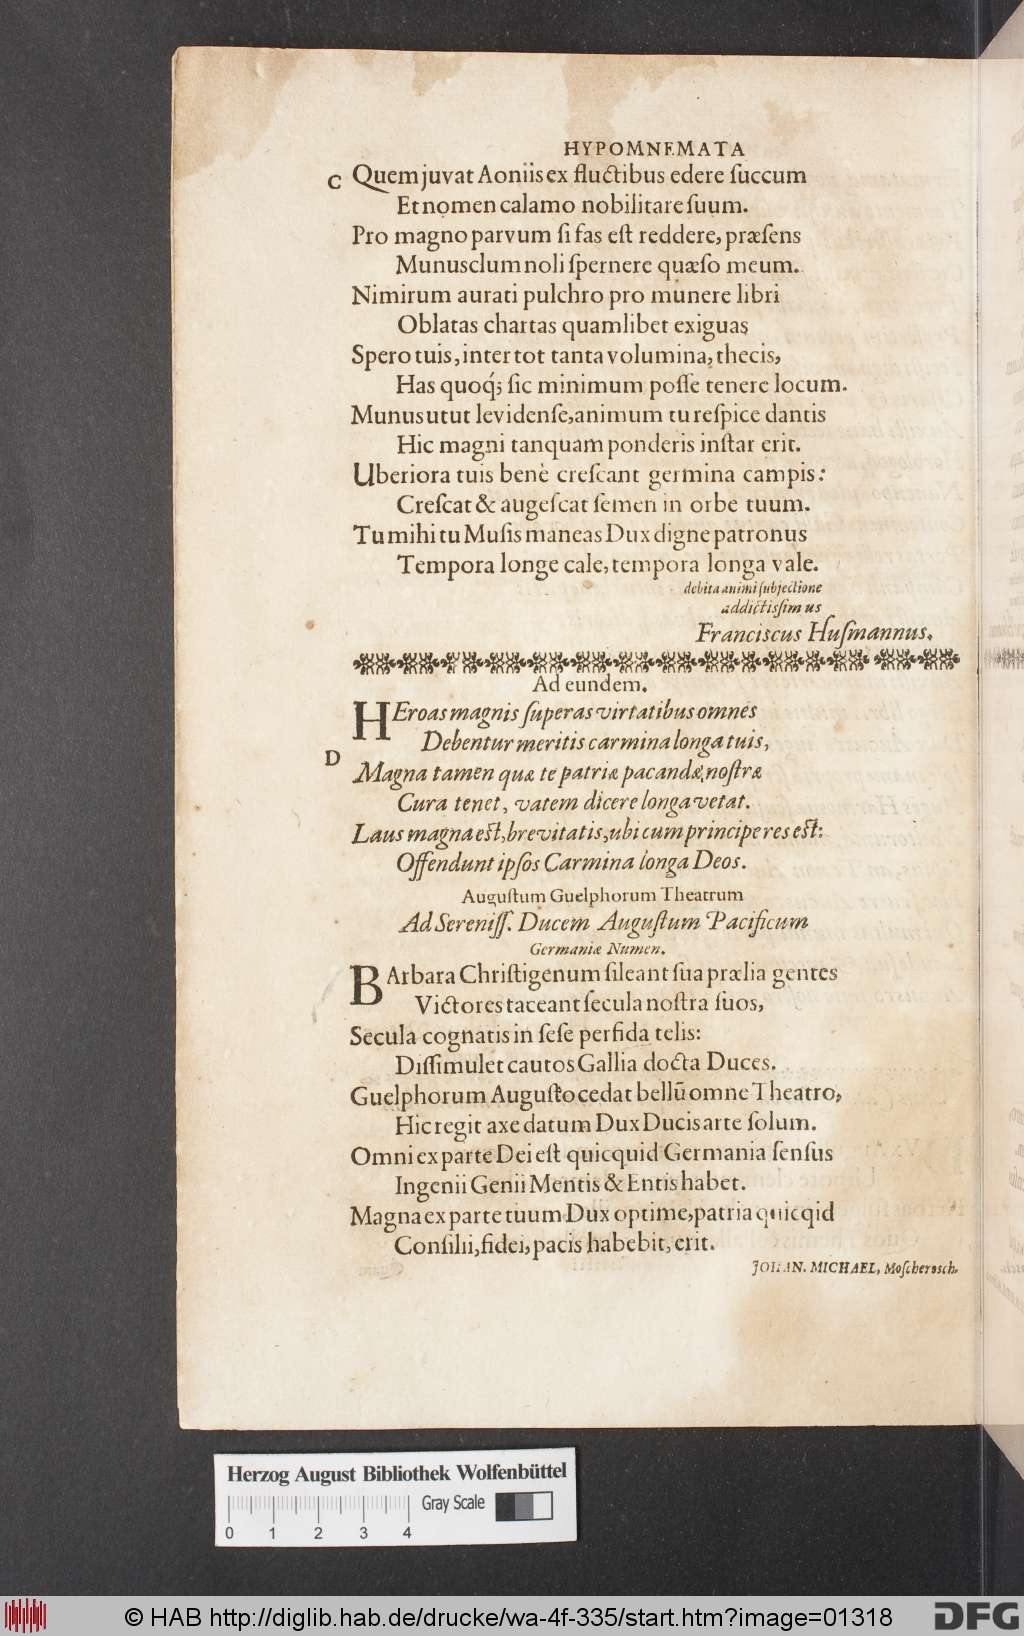 HYPOMNEMATA
C Quem juvat Aoniis ex fluctibus edere ſuccum
Et nomen calamo nobilitare ſuum.
Pro magno parvum ſi fas eſt reddere, præſens
Munusclum noli ſpernere quæſo meum.
Nimirum aurati pulchro pro munere libri
Oblatas chartas quamlibet exiguas
Spero tuis, inter tot tanta volumina, thecis,
Has quoq́; ſic minimum poſſe tenere locum.
Munus utut levidenſe, animum tu reſpice dantis
Hic magni tanquam ponderis inſtar erit.
Uberiora tuis benè creſcant germina campis:
Creſcat & augeſcat ſemen in orbe tuum.
Tu mihi tu Muſis maneas Dux digne patronus
Tempora longe cale, tempora longa vale.
debita animi ſubjectione
addictiſſimus
Franciscus Huſmannus.
Ad eundem.
HEroas magnis ſuperas virtatibus omnes
Debentur meritis carmina longa tuis,
D
Magna tamen quæ te patriæ pacandæ, noſtræ
Cura tenet, vatem dicere longa vetat.
Laus magna eſt, brevitatis, ubi cum principe res eſt:
Offendunt ipſos Carmina longa Deos.
Auguſtum Guelphorum Theatrum
Ad Sereniſſ. Ducem Auguſtum Pacificum
Germaniæ Numen.
BArbara Chriſtigenum ſileant ſua prælia gentes
Victores taceant ſecula noſtra ſuos,
Secula cognatis in ſeſe perfida telis:
Diſſimulet cautos Gallia docta Duces.
Guelphorum Auguſto cedat bellū omne Theatro,
Hic regit axe datum Dux Ducis arte ſolum.
Omni ex parte Dei eſt quicquid Germania ſenſus
Ingenii Genii Mentis & Entis habet.
Magna ex parte tuum Dux optime, patria quicqid
Conſilii, fidei, pacis habebit, erit.
JOHAN. MICHAEL, Moſcherosch.
Herzog August Bibliothek Wolfenbüttel
Gray Scale
0 1 2 3 4
© HAB http://diglib.hab.de/drucke/wa-4f-335/start.htm?image=01318
DFG